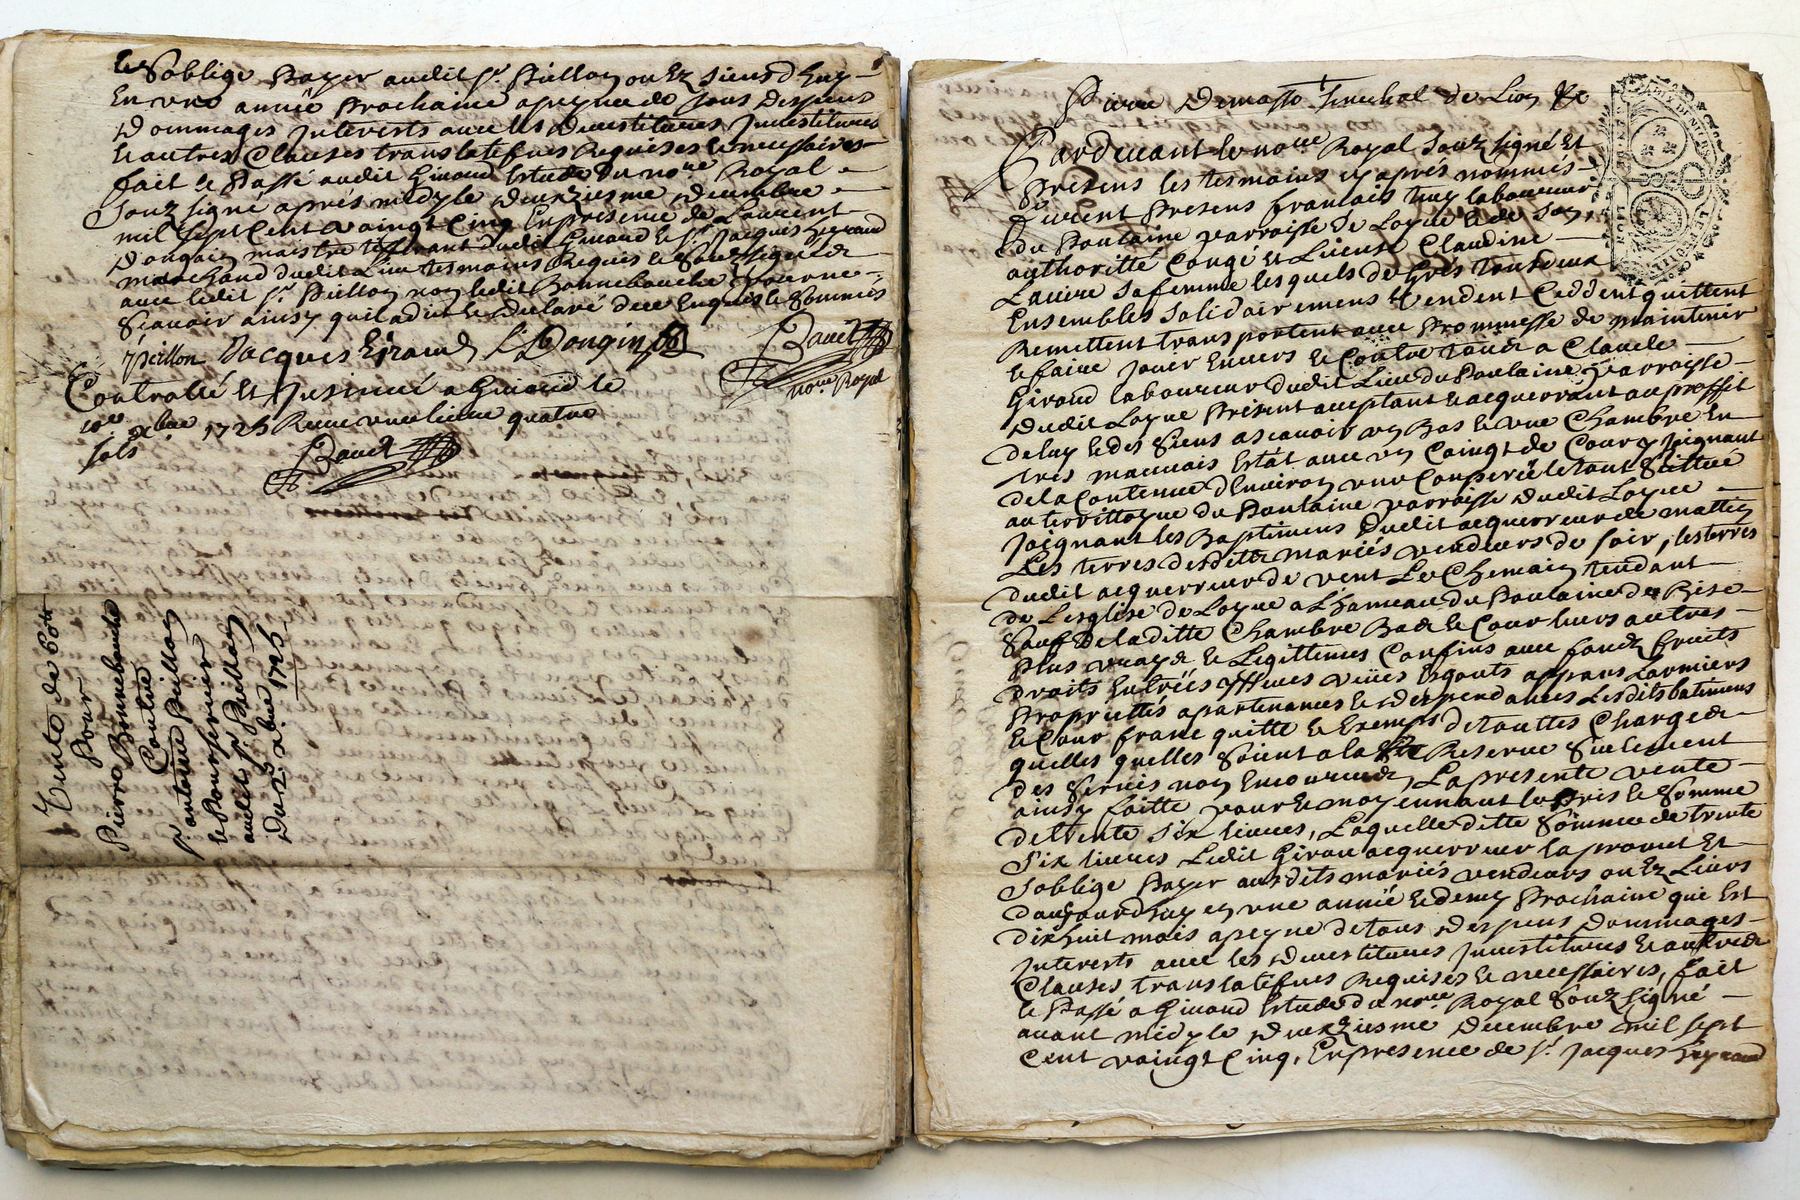 et Soblige Payer audit Sr. Peillon ou Ez Siens dhuy
En une année Prochaine apeyne de tous despens
Dommages Interests avec les devestitures Investitures
Et autres Clauses translatifves Requises et necessaires
fait et Passé audit Estude du nore Royal
Souz signé aprés midy le deuxiesme decembre
mil sept Cent vaingt Cinq En presence de Laurent
Dongin maistre audit et Sr. Jacques
marchand dudit Lieu tesmoins Requis et Souz signéz
avec ledit Sr. Peillon non ledit Bonnebouche pour ne
Scavoir ainsy quil a dit et declaré de ce Enquis et Sommés
Peillon Jacques L Dongin
Bauet
nore Royal
Controllé Et Insinué a le
xbre 1725 Receu une livre quatre
sols
Bauet
Vente de 60lt
Pour
Pierre Bonnebouche
Contre
Sr. antoine Peillon
audit Sr. Peillon
Du 2 xbre 1725
Pierre Demasso Senechal de Lion &c
Pardevant le nore Royal Souz signé Et
Presens les tesmoins cy aprés nommés
furent Presens francois laboureur
du Poulaine parroisse de Loyse et de Son
authoritté Congé et License Claudine
sa femme lesquels de Grés tous deux
Ensembles Solidairemens Vendent Ceddent quittent
Remettent transportent avec Prommesse de maintenir
et faire jouir Envers et Contre tous a Claude
laboureur dudit Lieu du Poulaine parroisse
dudit Loyse Présent acceptant et acquerrant au proffit
de luy et des Siens ascavoir un Bas et une Chambre En
tres mauvais Estât avec un de Cour joignant
de la Contenue d'Environ une Couperée le tout Scittué
au territtoyre du Poulaine parroisse dudit Loyse
Jocgnant les Baptimens dudit acquerreur de mattin
Les terres desditts mariés vendeurs de soir, les terres
dudit acquerreur de vent Le Chemain tendant
de Lesglise de Loyse a L'hameau du Poulaine de Bise
Sauf De laditte Chambre Bas et Cour leurs autres
Plus vrays et Legittimes Confins avec fondz fruits
droits Entrées yssues
Propriettés apartenances et despendances Lesdits batimens
et Cour franc quitte et Exemps de touttes Chargede
quelles quelles Soient a la Reserve Seulement
des Servis non La presente vente
ainsy faitte pour et moyennant le Pris et Somme
de trente Six livres, Laquelle ditte Somme de trente
Six livres Ledit acquerreur la promet Et
Soblige Payer ausdits mariés vendeurs ou Ez Leurs
daujourdhuy en une année et demy Prochaine qui Est
dixhuit mois apeyne de tous despens dommages
Interests avec les devestitures Investitures et autrede
Clauses translatifves Requises et necessaires, fait
et Passé a Estude du nore Royal Souz signé
avant midy le deuxiesme decembre mil sept
Cent vaingt Cinq, En presence de Sr. Jacques